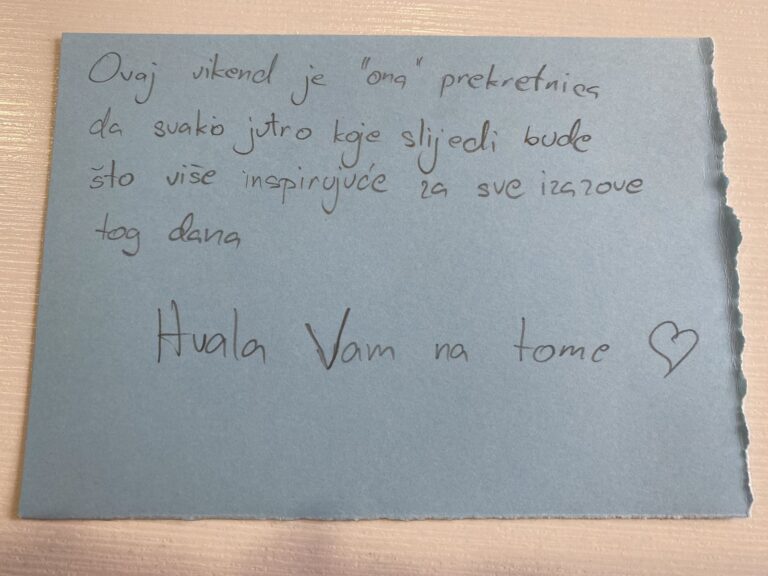 Ovaj vikend je "ona" prekretnica
da svako jutro koje slijedi bude
što više inspirujuće za sve izazove
tog dana
Hvala Vam na tome ♡